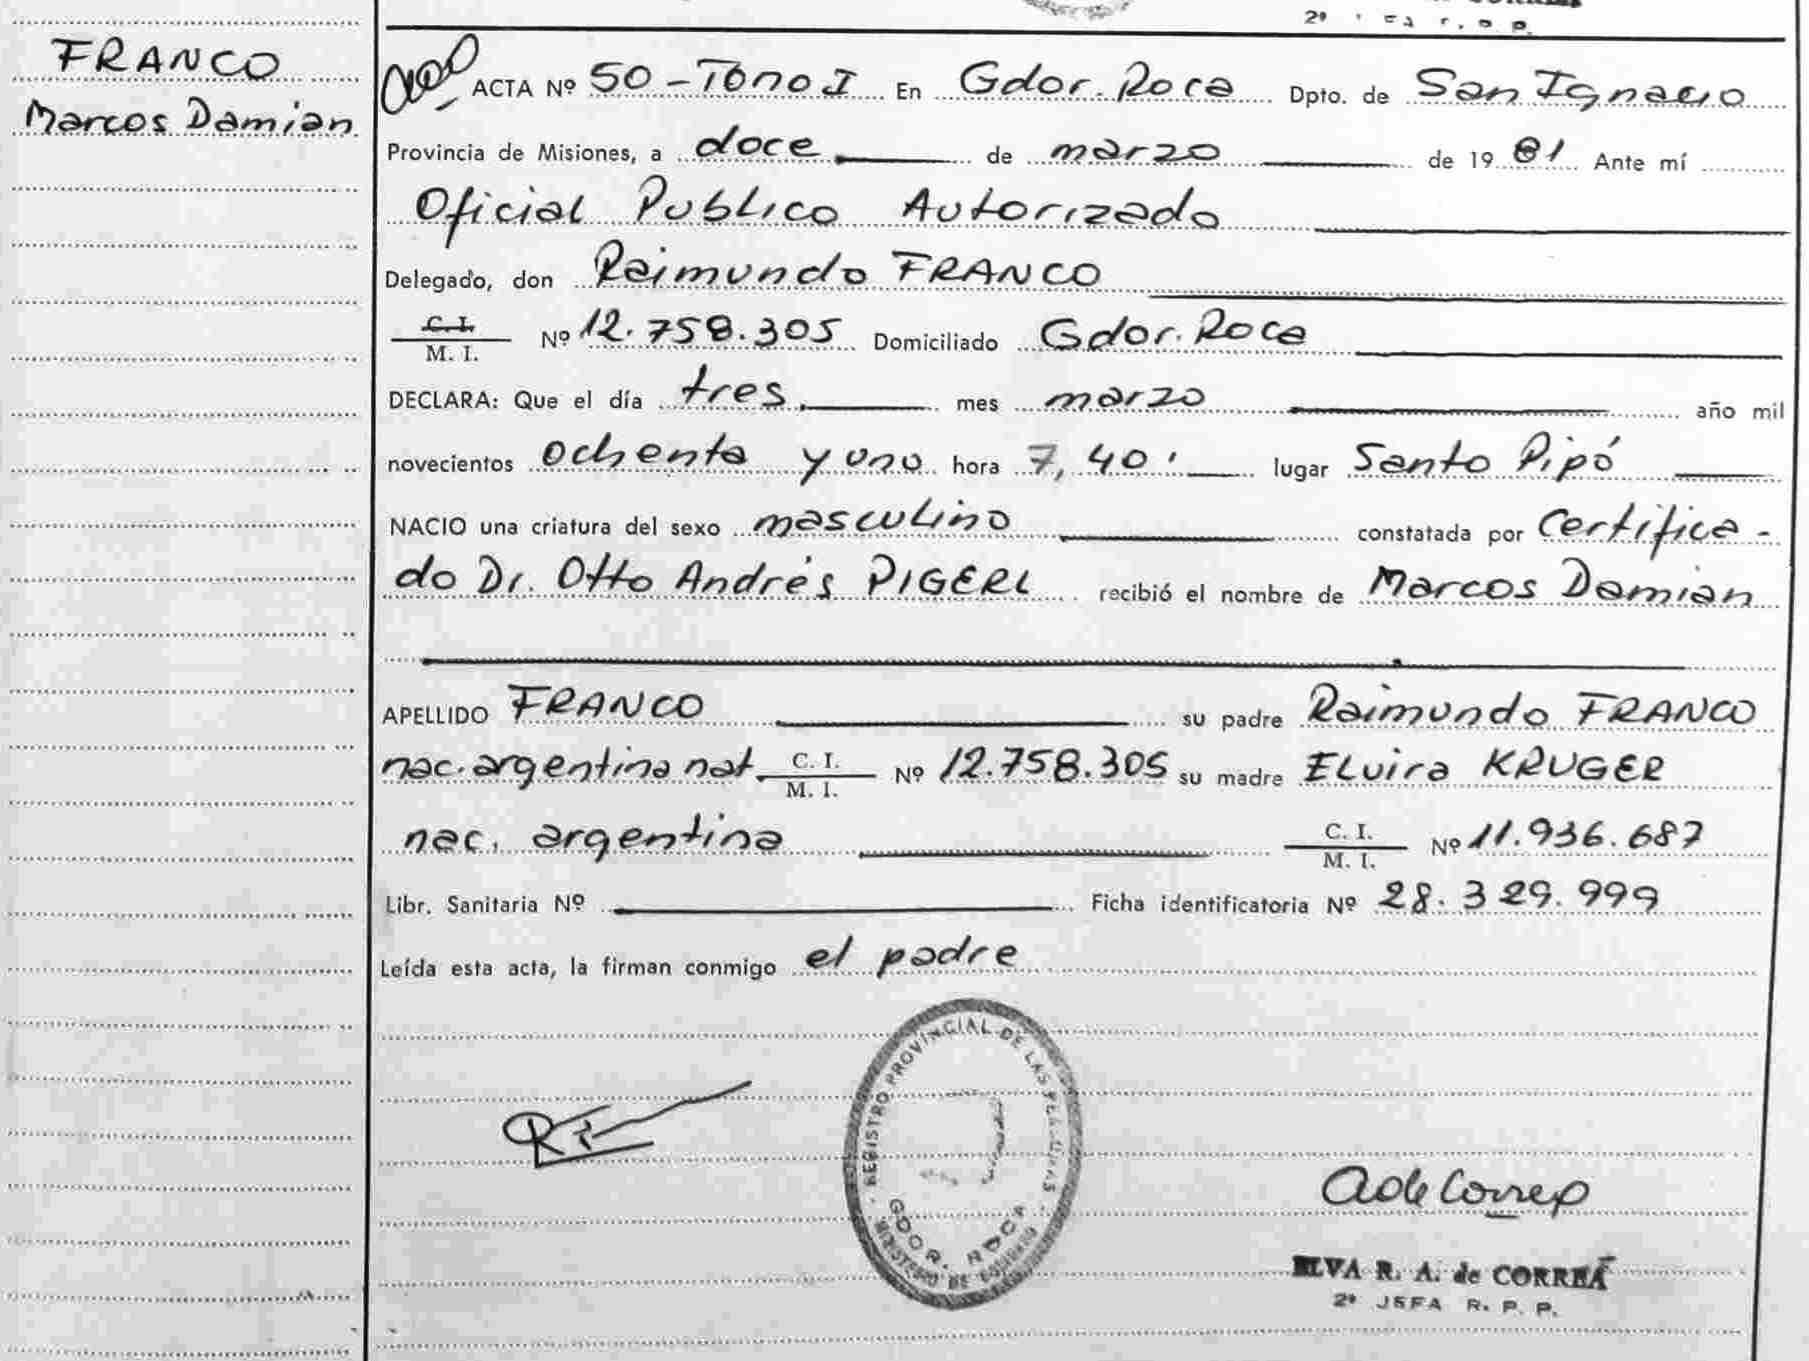 FRANCO
Marcos Damian
ACTA Nº 50 - Tomo I En Gdor. Roca Dpto. de San Ignacio
Provincia de Misiones, a doce de marzo de 1981 Ante mí
Oficial Publico Autorizado
Delegado, don Raimundo FRANCO
C. I.
M. I. Nº 12.758.305 Domiciliado Gdor. Roca
DECLARA: Que el día tres mes marzo año mil
novecientos ochenta y uno hora 7,40' lugar Santo Pipó
NACIO una criatura del sexo masculino constatada por Certifica-
do Dr. Otto Andrés PIGERL recibió el nombre de Marcos Damian
APELLIDO FRANCO su padre Raimundo FRANCO
nac. argentina nat. C. I.
M. I. Nº 12.758.305 su madre ELvira KRUGER
nac. argentina C. I.
M. I. Nº 11.936.687
Libr. Sanitaria Nº Ficha identificatoria Nº 28.329.999
Leída esta acta, la firman conmigo el padre
REGISTRO PROVINCIAL DE LAS
GDOR. ROCA
MINISTERIO DE GOBIERNO
ELVA R. A. de CORREA
2º JEFA R. P. P.